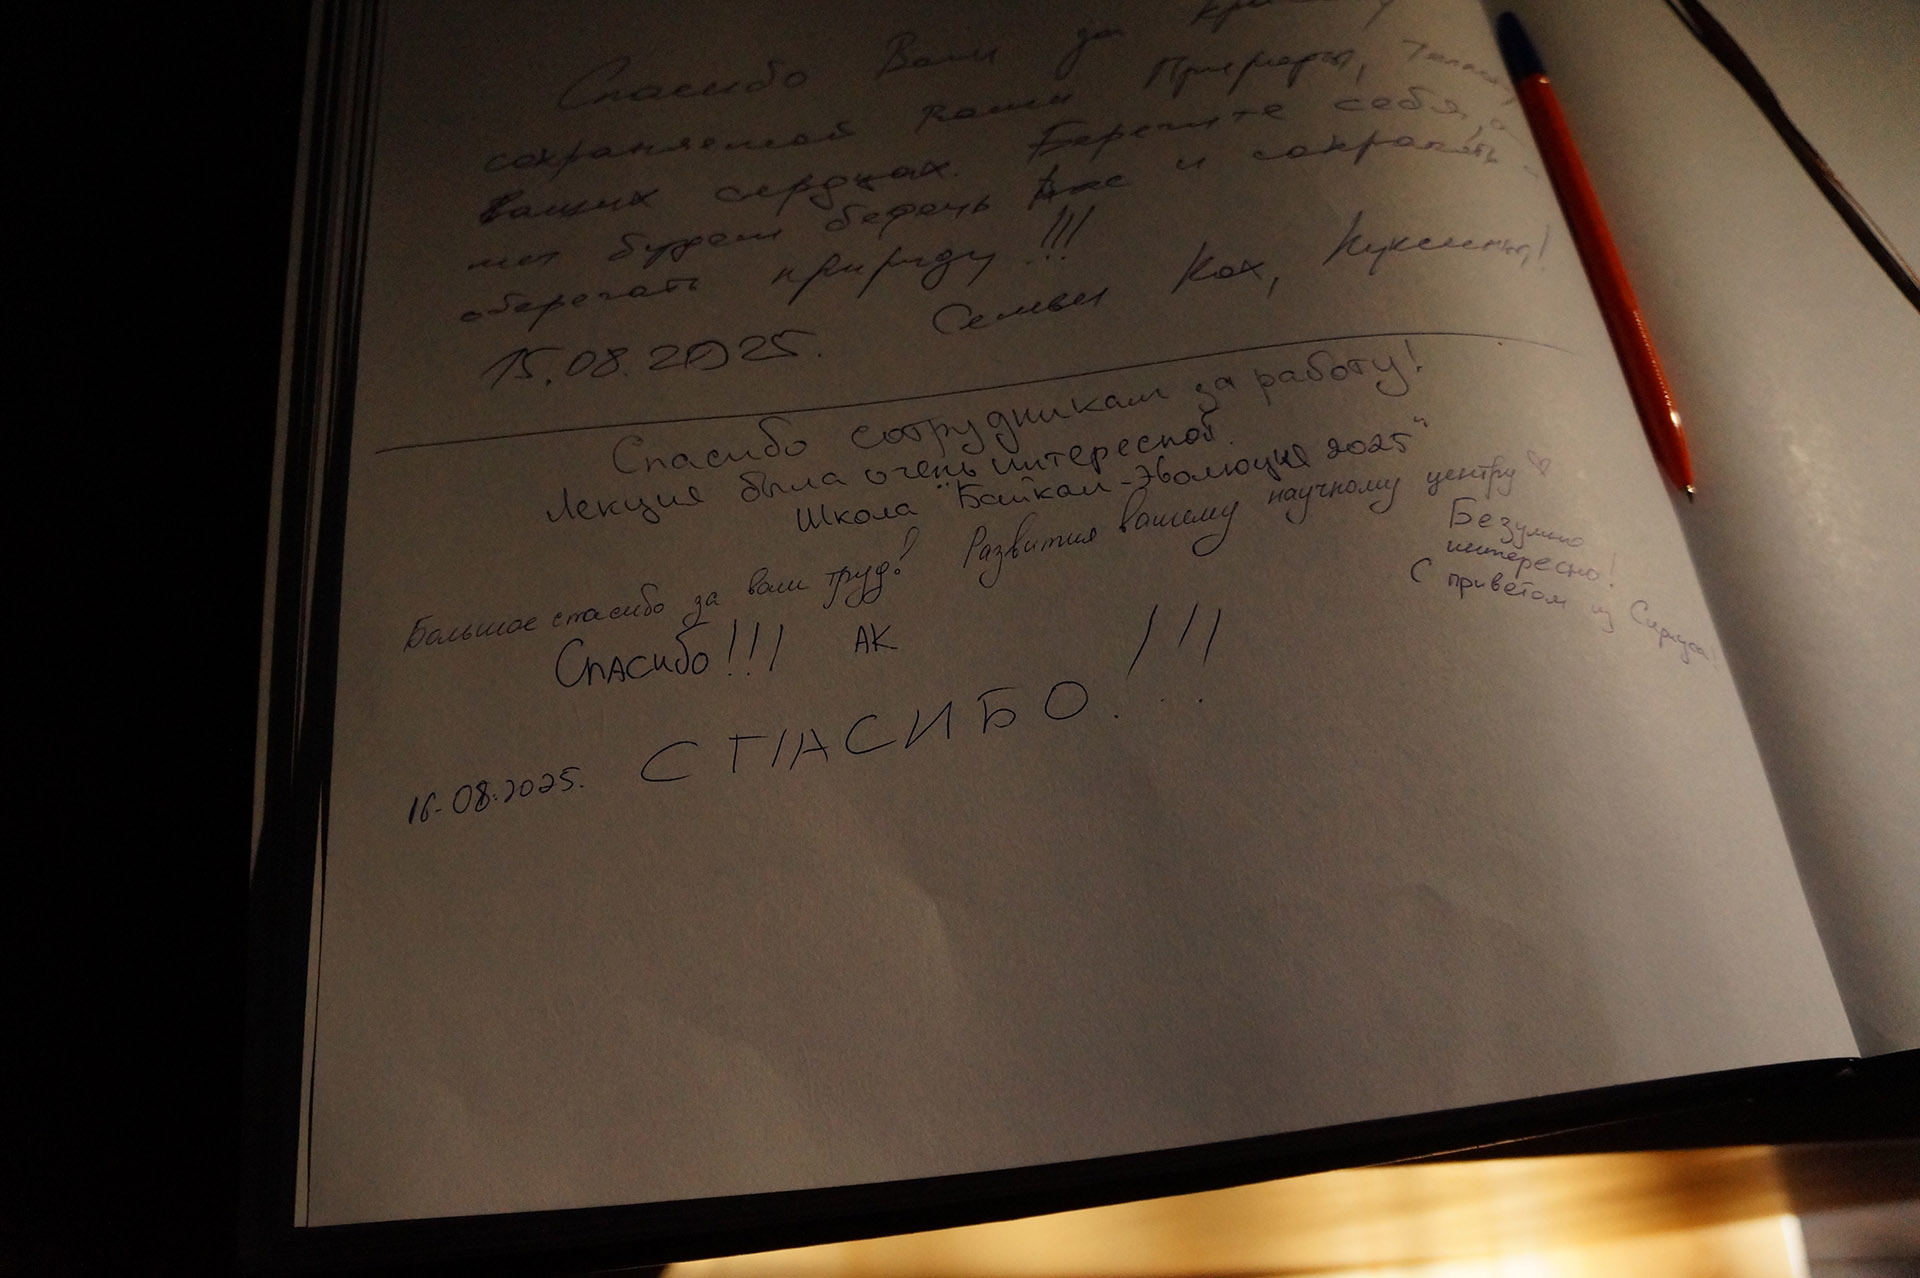 Спасибо Вам за
сохраняемой вами Природы,
ваших сердцах. Берегите себя, а
мы будем беречь Вас и сохранять -
оберегать природу!!!
15.08.2025. Семьи Кох,
Спасибо сотрудникам за работу!
Лекция была очень интересной.
Школа "Байкал-Эволюция 2025"
Большое спасибо за ваш труд! Развития вашему научному центру♡
Безумно
интересно!
С приветом из Сириуса!
Спасибо!!! АК
СПАСИБО!!!
16.08.2025.